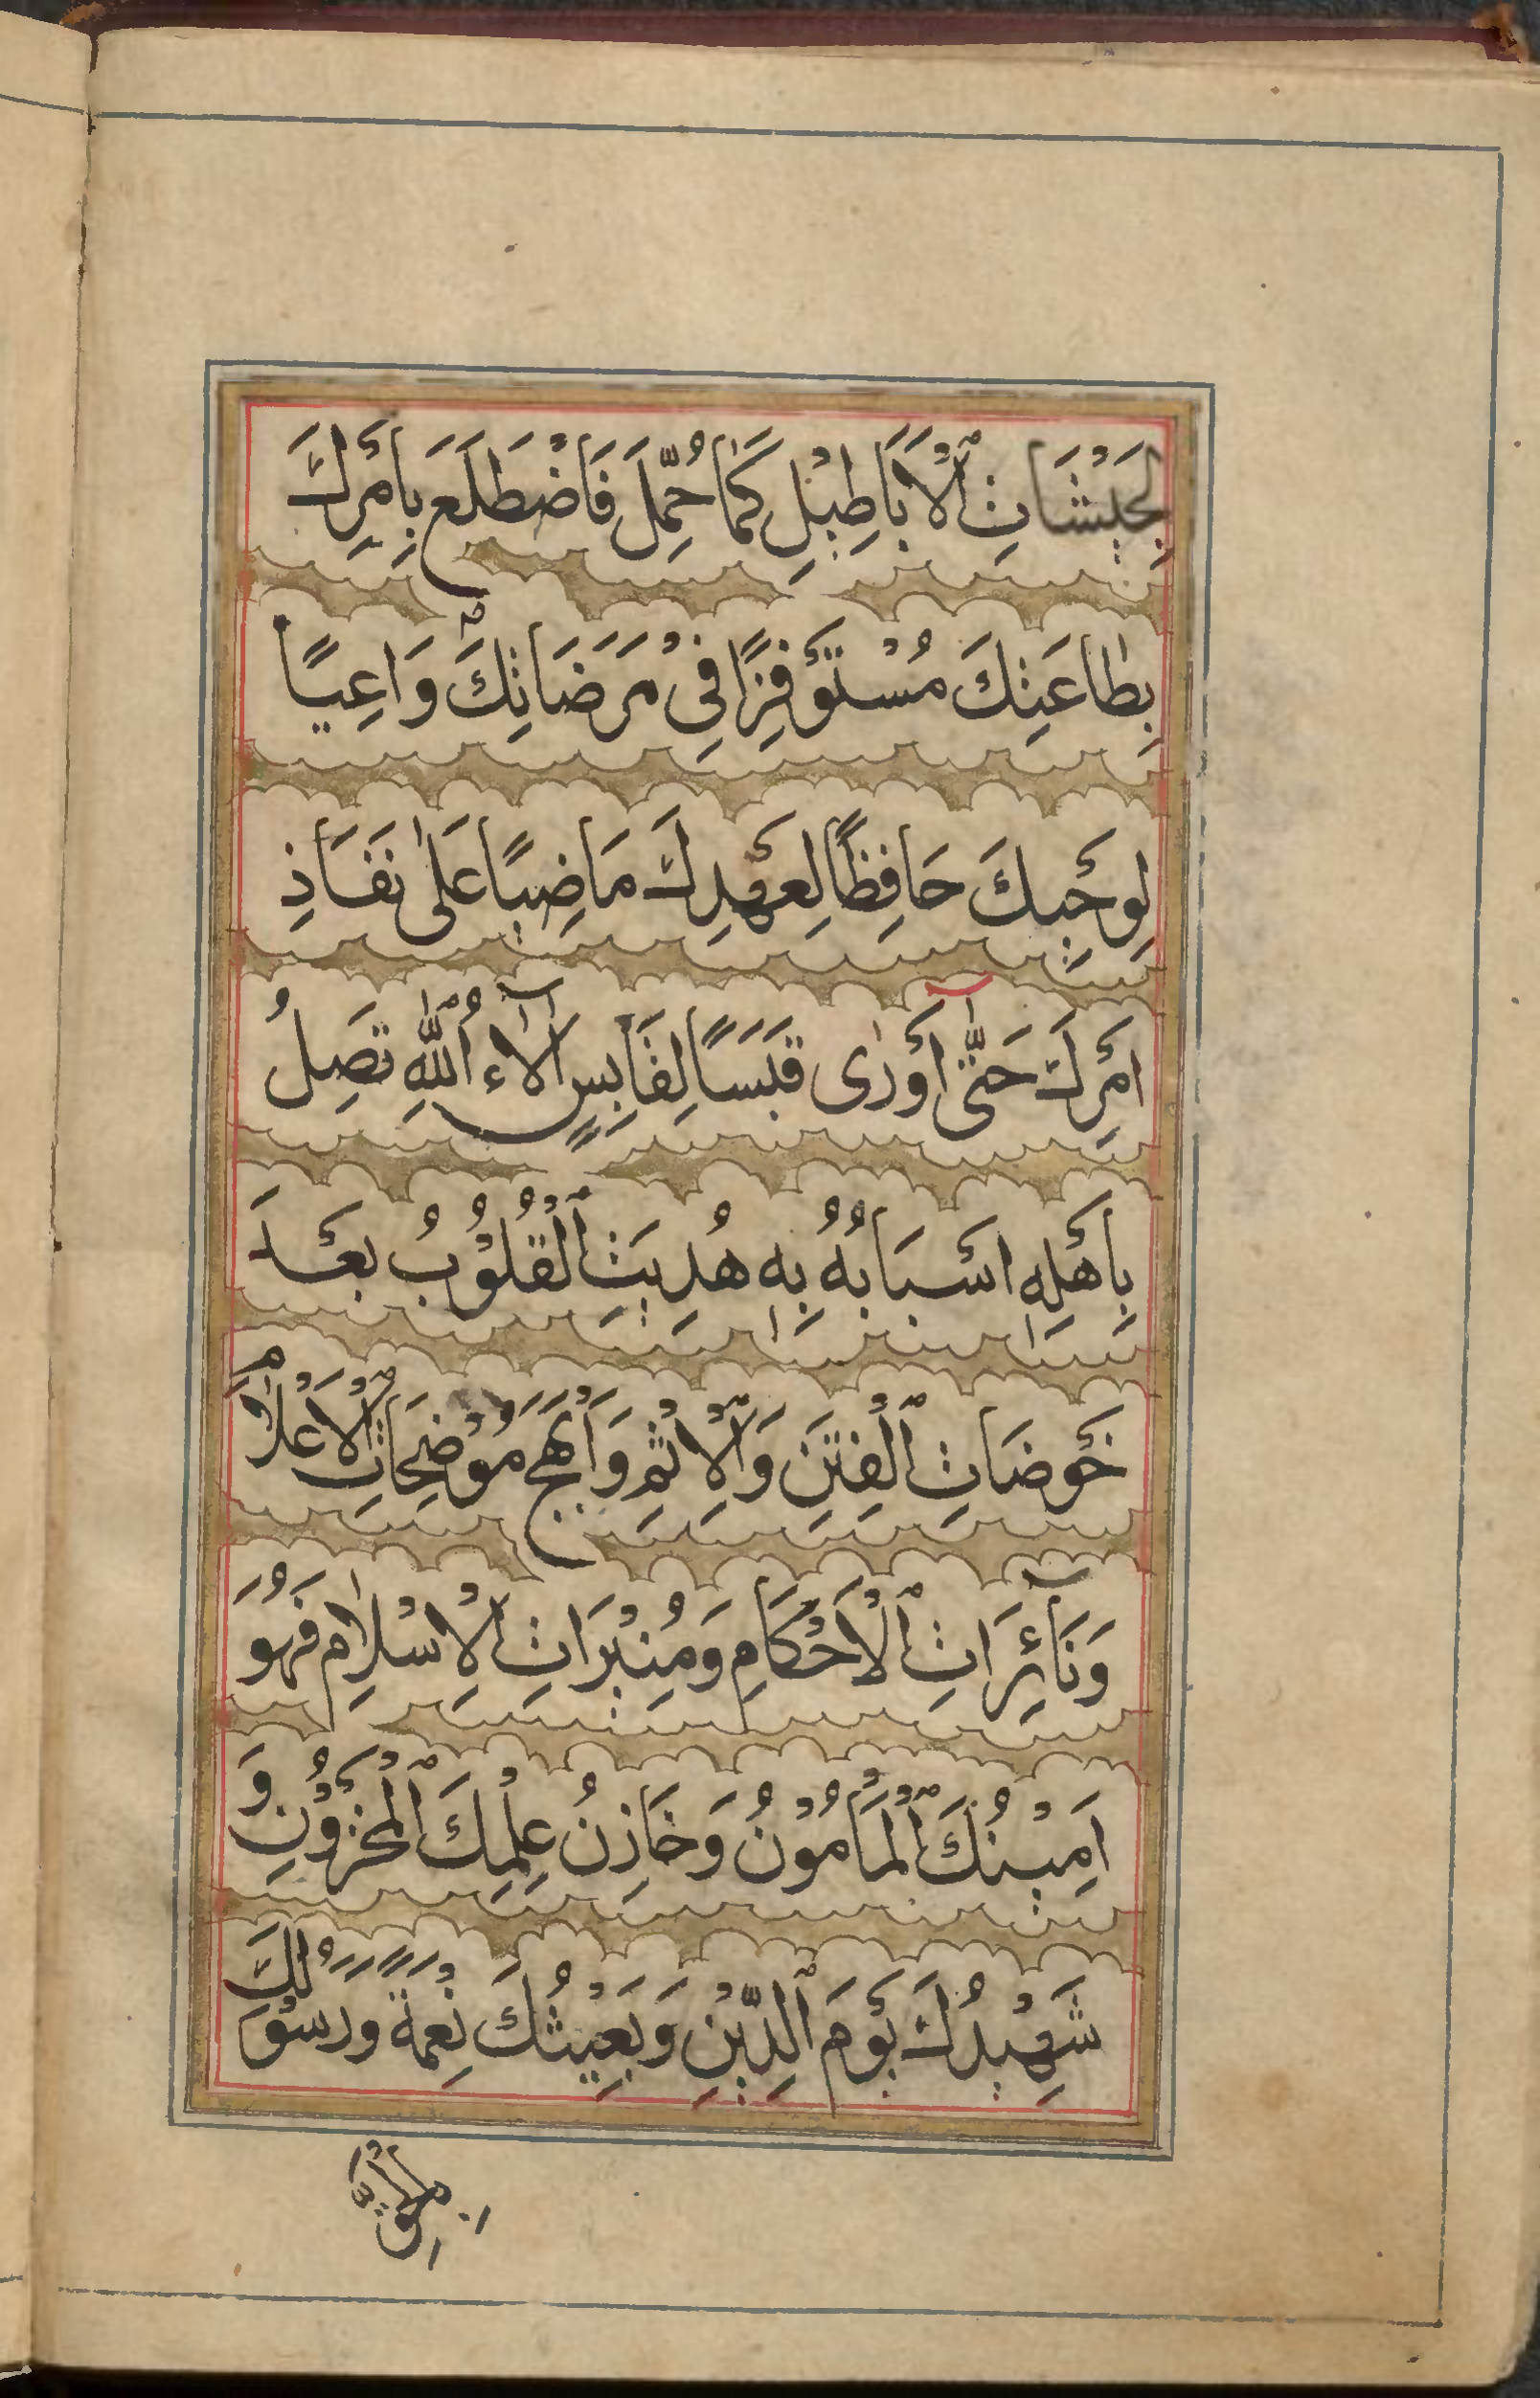 لِجَيْشَاتِ ٱلْاَبَاطِيْلِ كَمَا حُمِّلَ فَاضْطَلَعَ بِاَمْرِكَ
بِطَاعَتِكَ مُسْتَوْفِزًا فِيْ مَرَضَاتِكَ وَاعِيًا
لِوَحْيِكَ حَافِظًا لِعَهْدِكَ مَاضِيًا عَلٰى نَفَاذِ
اَمْرِكَ حَتّٰى اَوْرٰى قَبَسًا لِقَابِسٍ اٰلَاءُ ٱللّٰهِ تَصِلُ
بِاَهْلِهٖ اَسْبَابُهُ بِهٖ هُدِيَتِ ٱلْقُلُوْبُ بَعْدَ
خَوْضَاتِ ٱلْفِتَنِ وَٱلْاِثْمِ وَاَبْهَجَ مُوْضِحَاتِ ٱلْاَعْلَامِ
وَنَآئِرَاتِ ٱلْاَحْكَامِ وَمُنِيْرَاتِ الْاِسْلَامِ فَهُوَ
اَمِيْنُكَ ٱلْمَأْمُوْنُ وَخَازِنُ عِلْمِكَ ٱلْمَخْزُوْنِ وَ
شَهِيْدُكَ يَوْمَ ٱلدِّيْنِ وَبَعِيْثُكَ نِعْمَةً وَرَسُوْلُكَ
بِالْحَقِّ